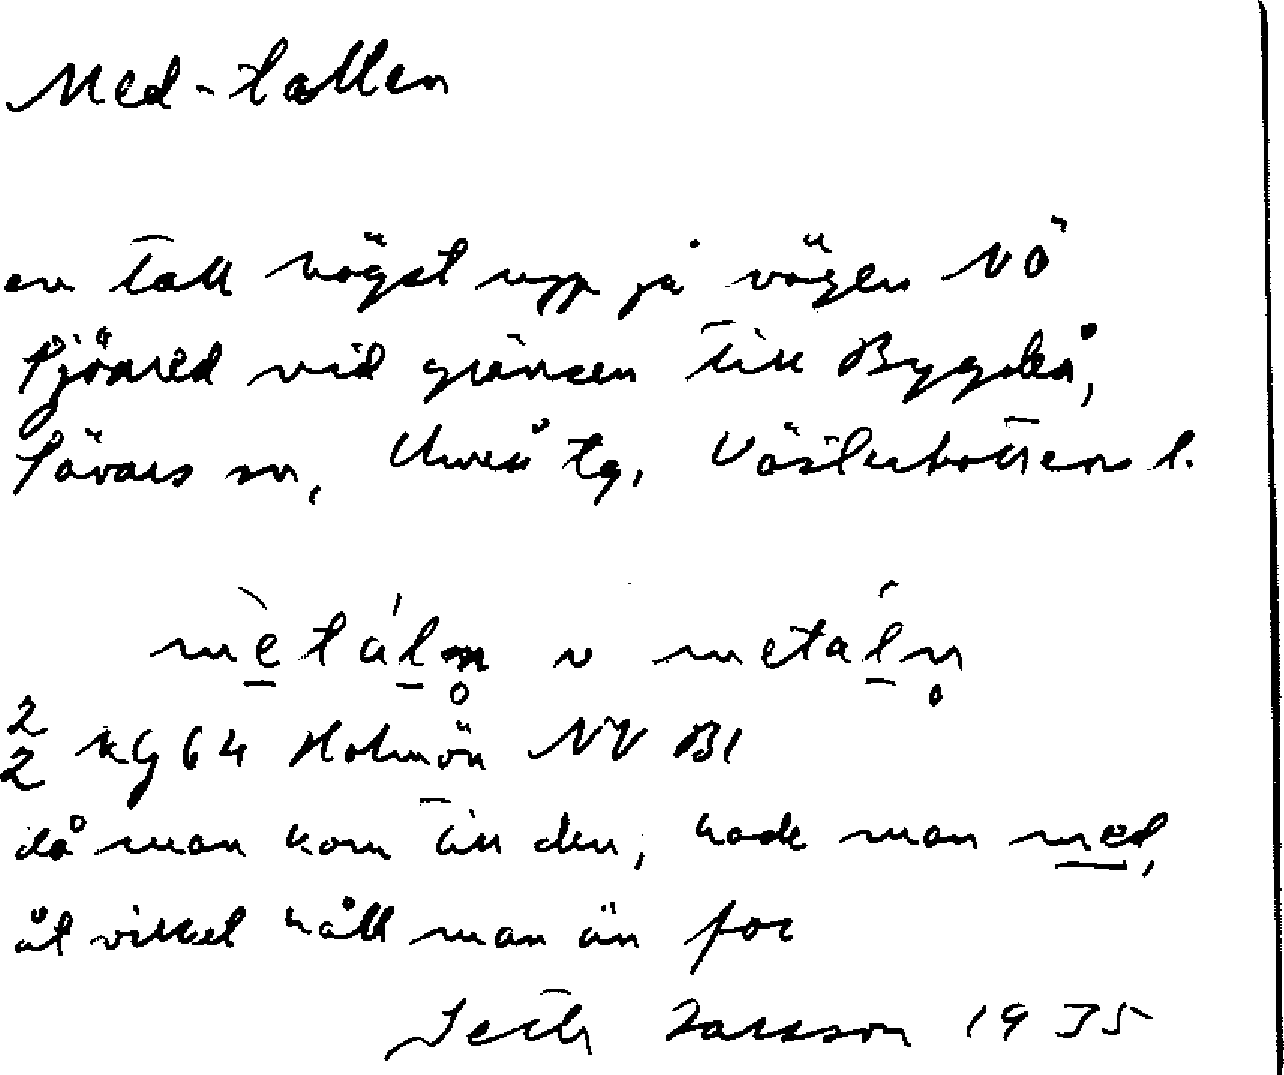 Med-tallen
en tall högst upp på vägen NÖ
Fjöåred vid gränsen till Bygdeå,
Sävars sn, Umeå tg, Västerbottens l.
mètáln v metáln
2/2 kg 64 Holmön NV Bl
då man kom till den, hade man med,
åt vilket håll man än for
Seth Larsson 1935